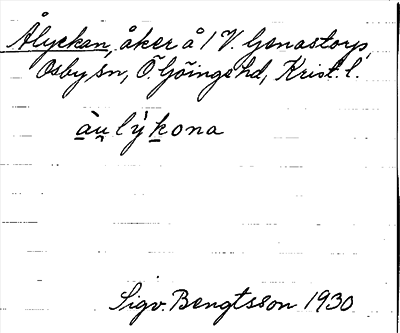 Ålyckan, åker å 1 V. Genastorp,
Osby sn, Ö. Göinge hd, Krist. l.
à̲u̯ lýk̲ona
Sigv. Bengtsson 1930